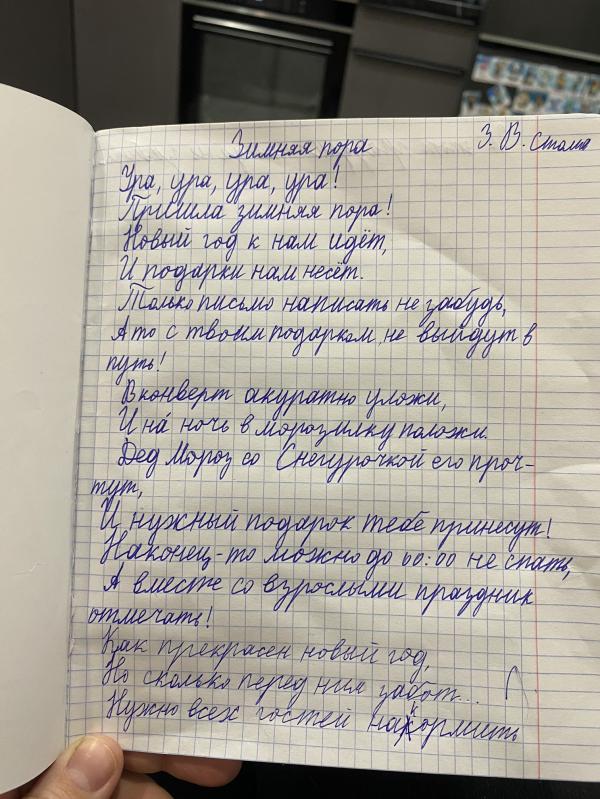 Зимняя пора З. В. Стома
Ура, ура, ура, ура!
Пришла зимняя пора!
Новый год к нам идёт,
И подарки нам несёт.
Только письмо написать не забудь,
А то с твоим подарком, не выйдут в
путь!
В конверт акуратно уложи,
И на́ ночь в морозилку положи.
Дед Мороз со Снегурочкой его проч-
тут,
И нужный подарок тебе принесут!
Наконец-то можно до 00:00 не спать,
А вместе со взрослыми праздник
отмечать!
Как прекрасен новый год,
Но сколько перед ним забот...
Нужно всех гостей накормить